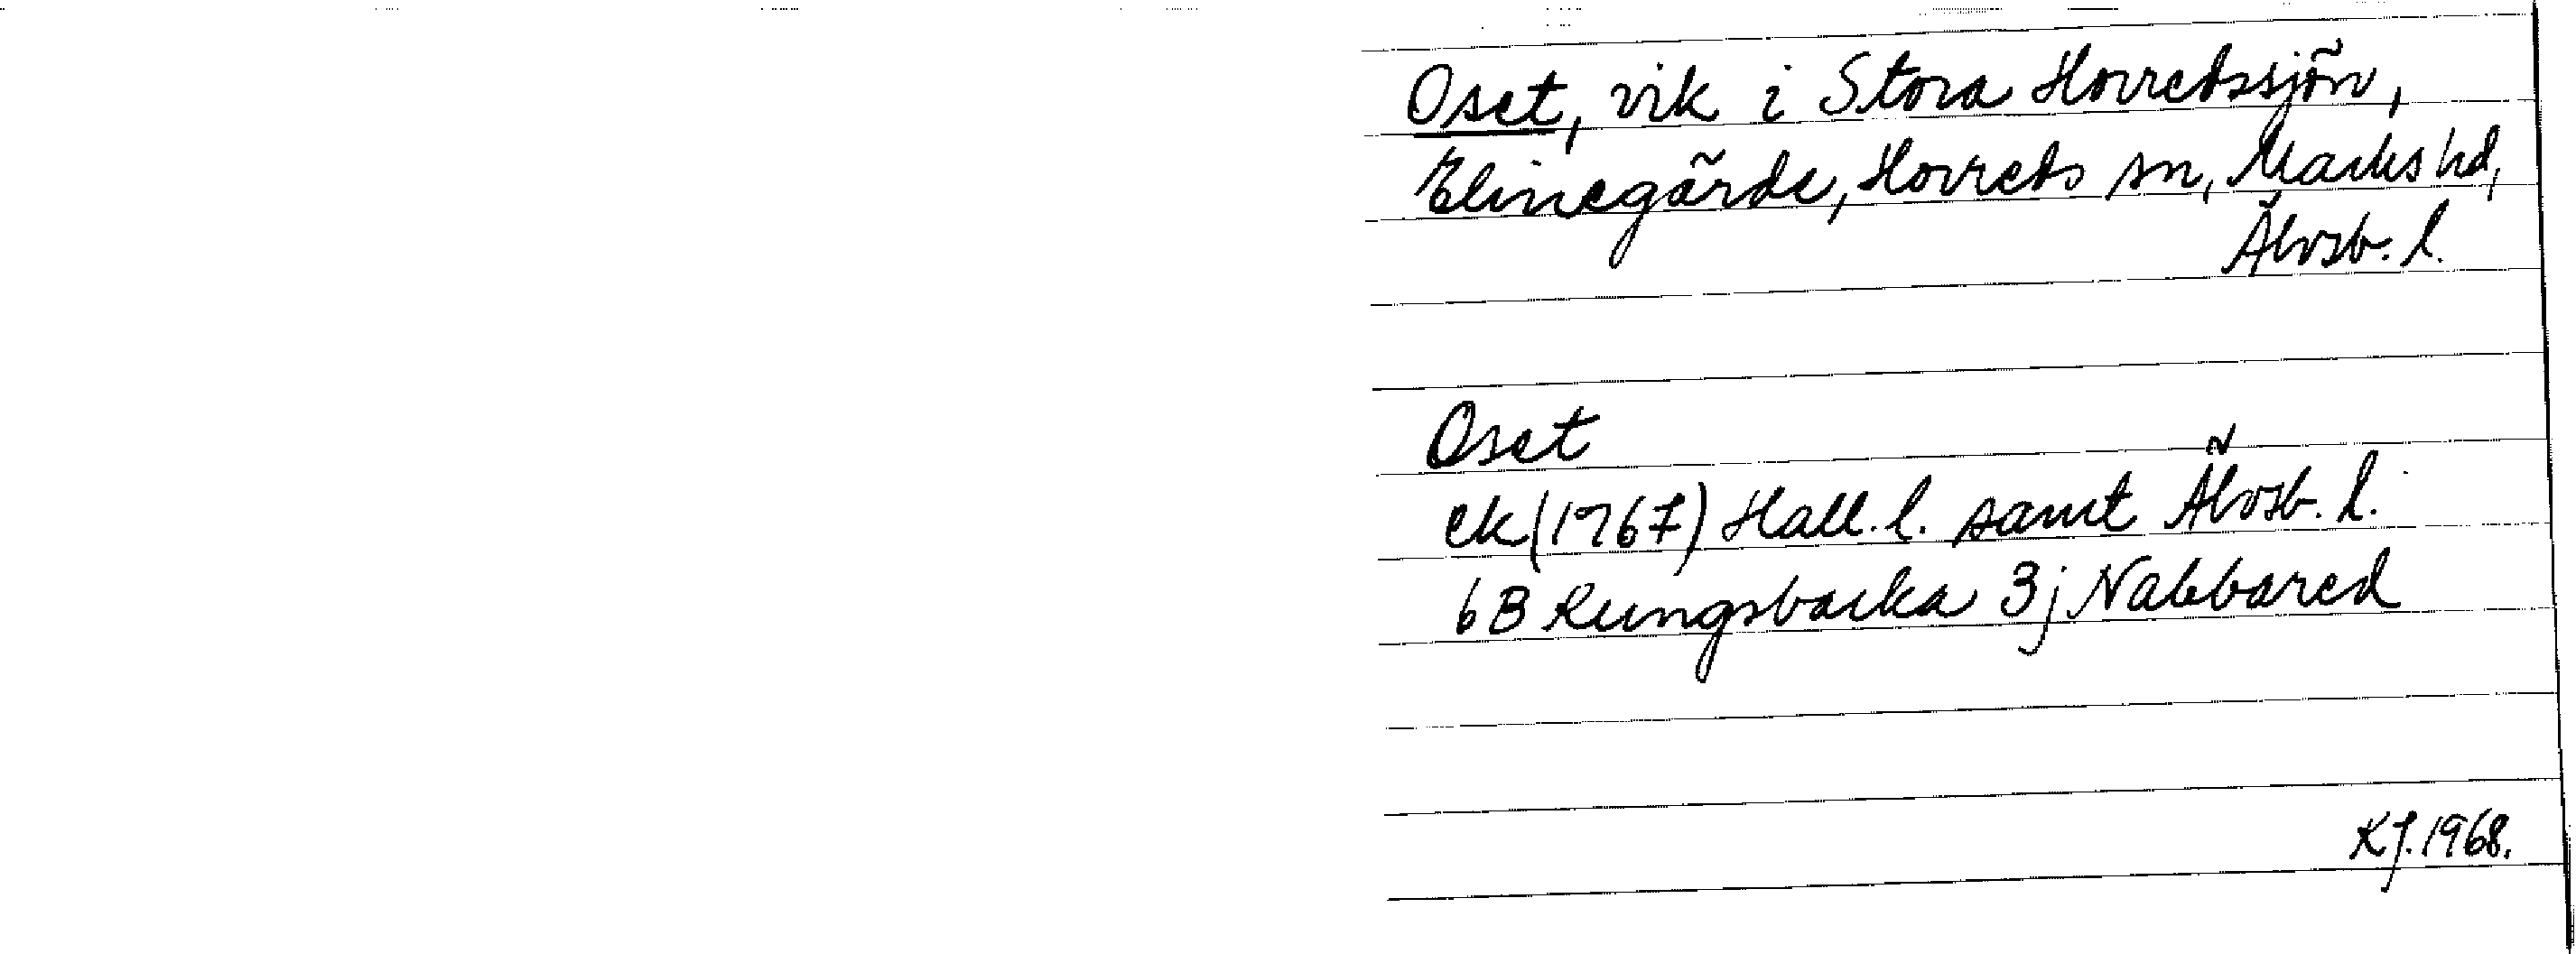 Oset, vik i Stora Horredssjön,
Elinegärde, Horreds sn, Marks hd,
Älvsb. l.
Oset
ek (1967) Hall. l. samt Älvsb. l.
6B Kungsbacka 3j Nabbared
KJ. 1968.